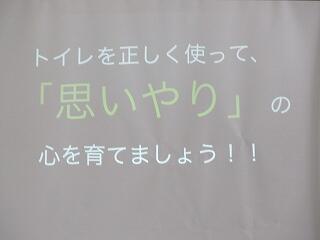 トイレを正しく使って、
「思いやり」の
心を育てましょう！！